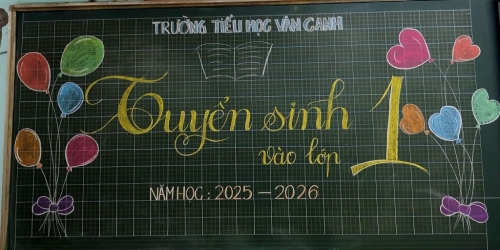 TRƯỜNG TIỂU HỌC VÂN CANH
Tuyển sinh
vào lớp 1
NĂM HỌC : 2025 - 2026